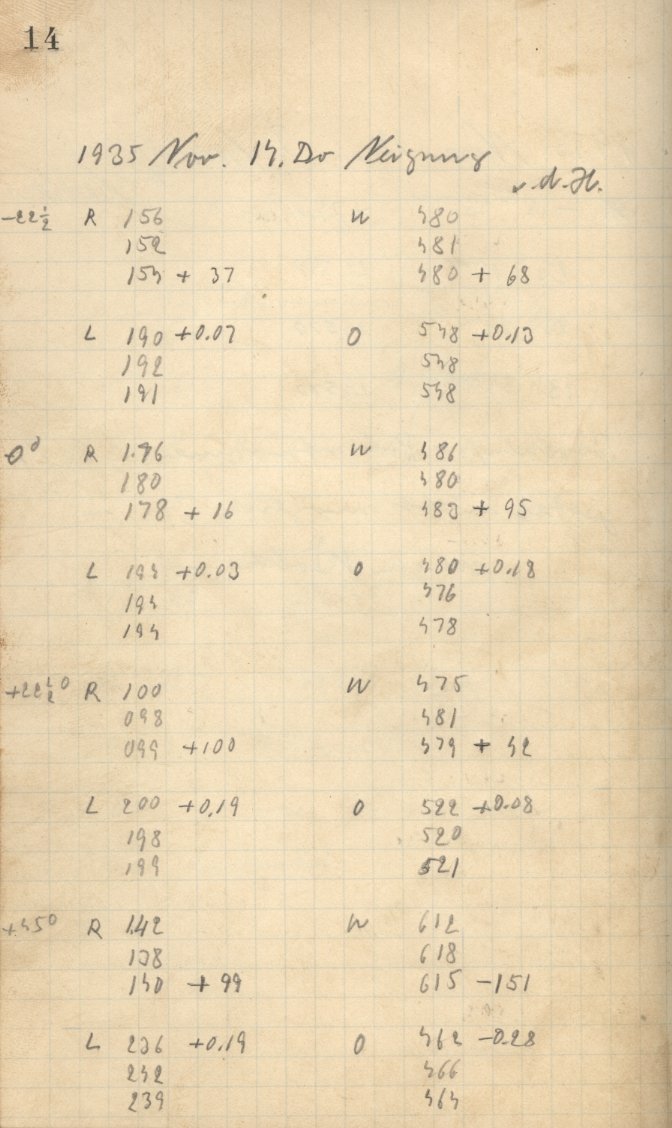 14
1935 Nov. 14. Do Neigung
v.d.H.
-22½ R 156 W 480
152 481
154 + 37 480 + 68
L 190 +0.07 O 548 +0.13
192 548
191 548
0° R 176 W 486
180 480
178 + 16 483 + 95
L 194 +0.03 O 580 +0.18
194 576
194 578
+22½° R 100 W 475
098 481
099 +100 479 + 42
L 200 +0.19 O 522 +0.08
198 520
199 521
+45° R 142 W 612
138 618
140 + 99 615 -151
L 236 +0.19 O 462 -0.28
242 466
239 464